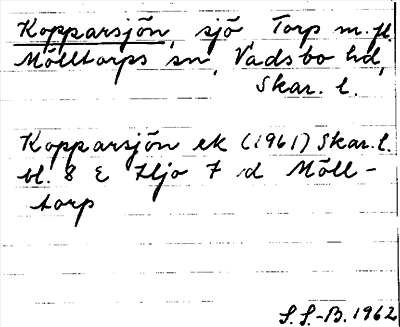 Kopparsjön, sjö Torp m.fl.
Mölltorps sn, Vadsbo hd,
Skar. l.
Kopparsjön ek (1961) Skar. l.
bl. 8 E Hjo 7 d Möll-
torp
S. S.-B. 1962